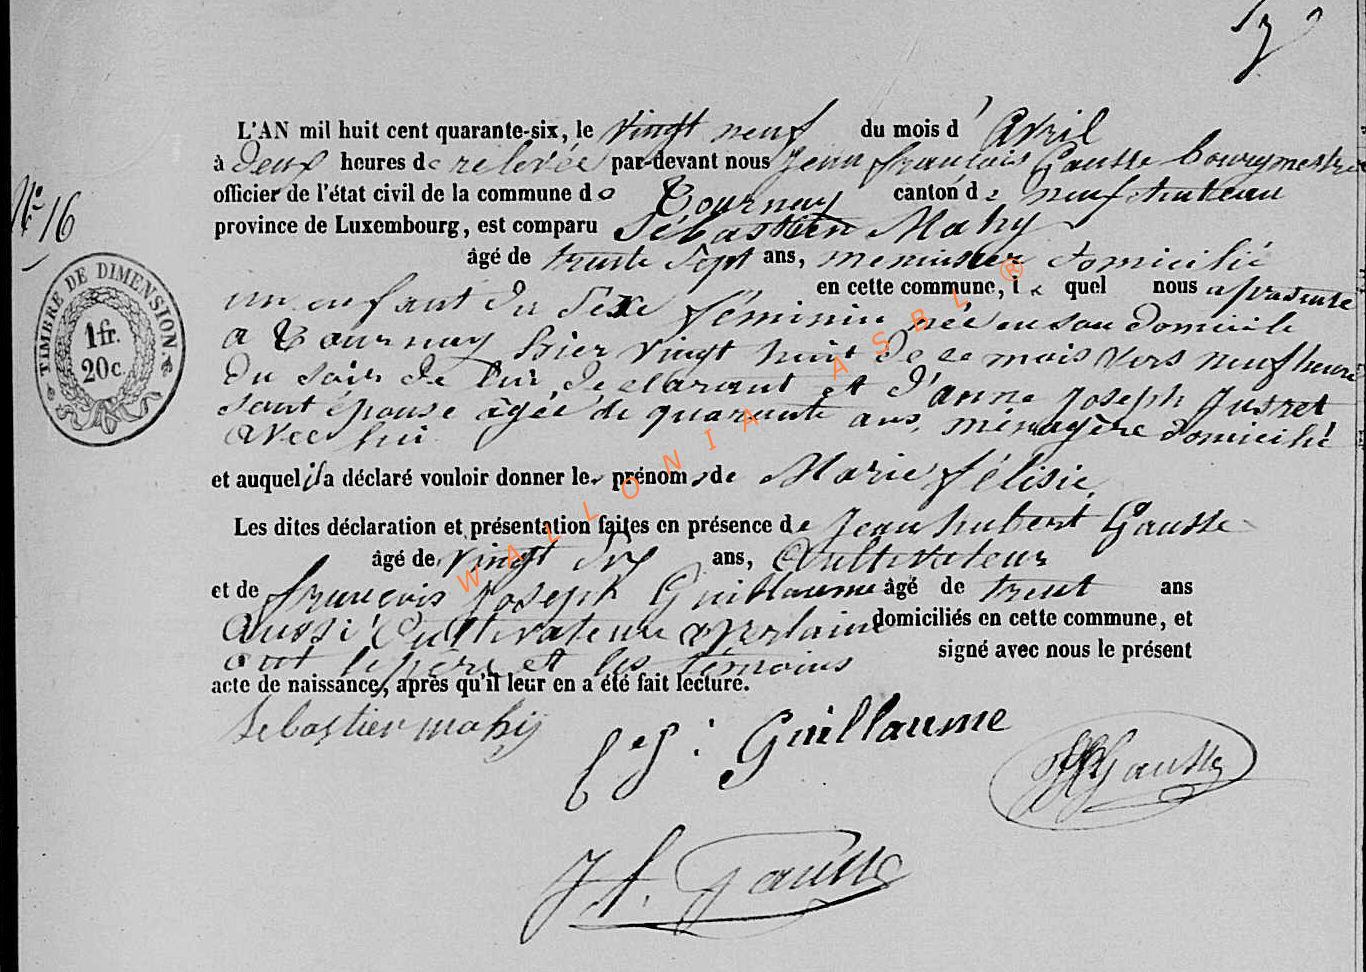 L'AN mil huit cent quarante-six, le vingt neuf du mois d' Avril
à deux heures de relevée par-devant nous Jean françois Gausse bourgmestre
officier de l'état civil de la commune de Tournay canton de neufchateau
N° 16
province de Luxembourg, est comparu Sébastien Mahy
âgé de trente sept ans, menuisier domicilié
en cette commune, le quel nous a présenté
TIMBRE DE DIMENSION.
1 fr.
20 c.
un enfant du Sexe féminin née en son domicile
a Tournay hier vingt huit de ce mois vers neuf heures
du soir de lui déclarant et d'anne Joseph Jusret
sont épouse agée de quarante ans, ménagère domicilié
avec lui
et auquel il a déclaré vouloir donner les prénoms de Marie félisie
Les dites déclaration et présentation faites en présence de Jean hubert Gausse
âgé de vingt six ans, Cultivateur
et de françois Joseph Guillaume âgé de trent ans
aussi Cultivateur domiciliés en cette commune, et
ont le pere et les témoins signé avec nous le présent
acte de naissance, après qu'il leur en a été fait lecture.
Sebastien mahy
Guillaume
Gausse
J h. Gausse
WALLONIA ASBL ®